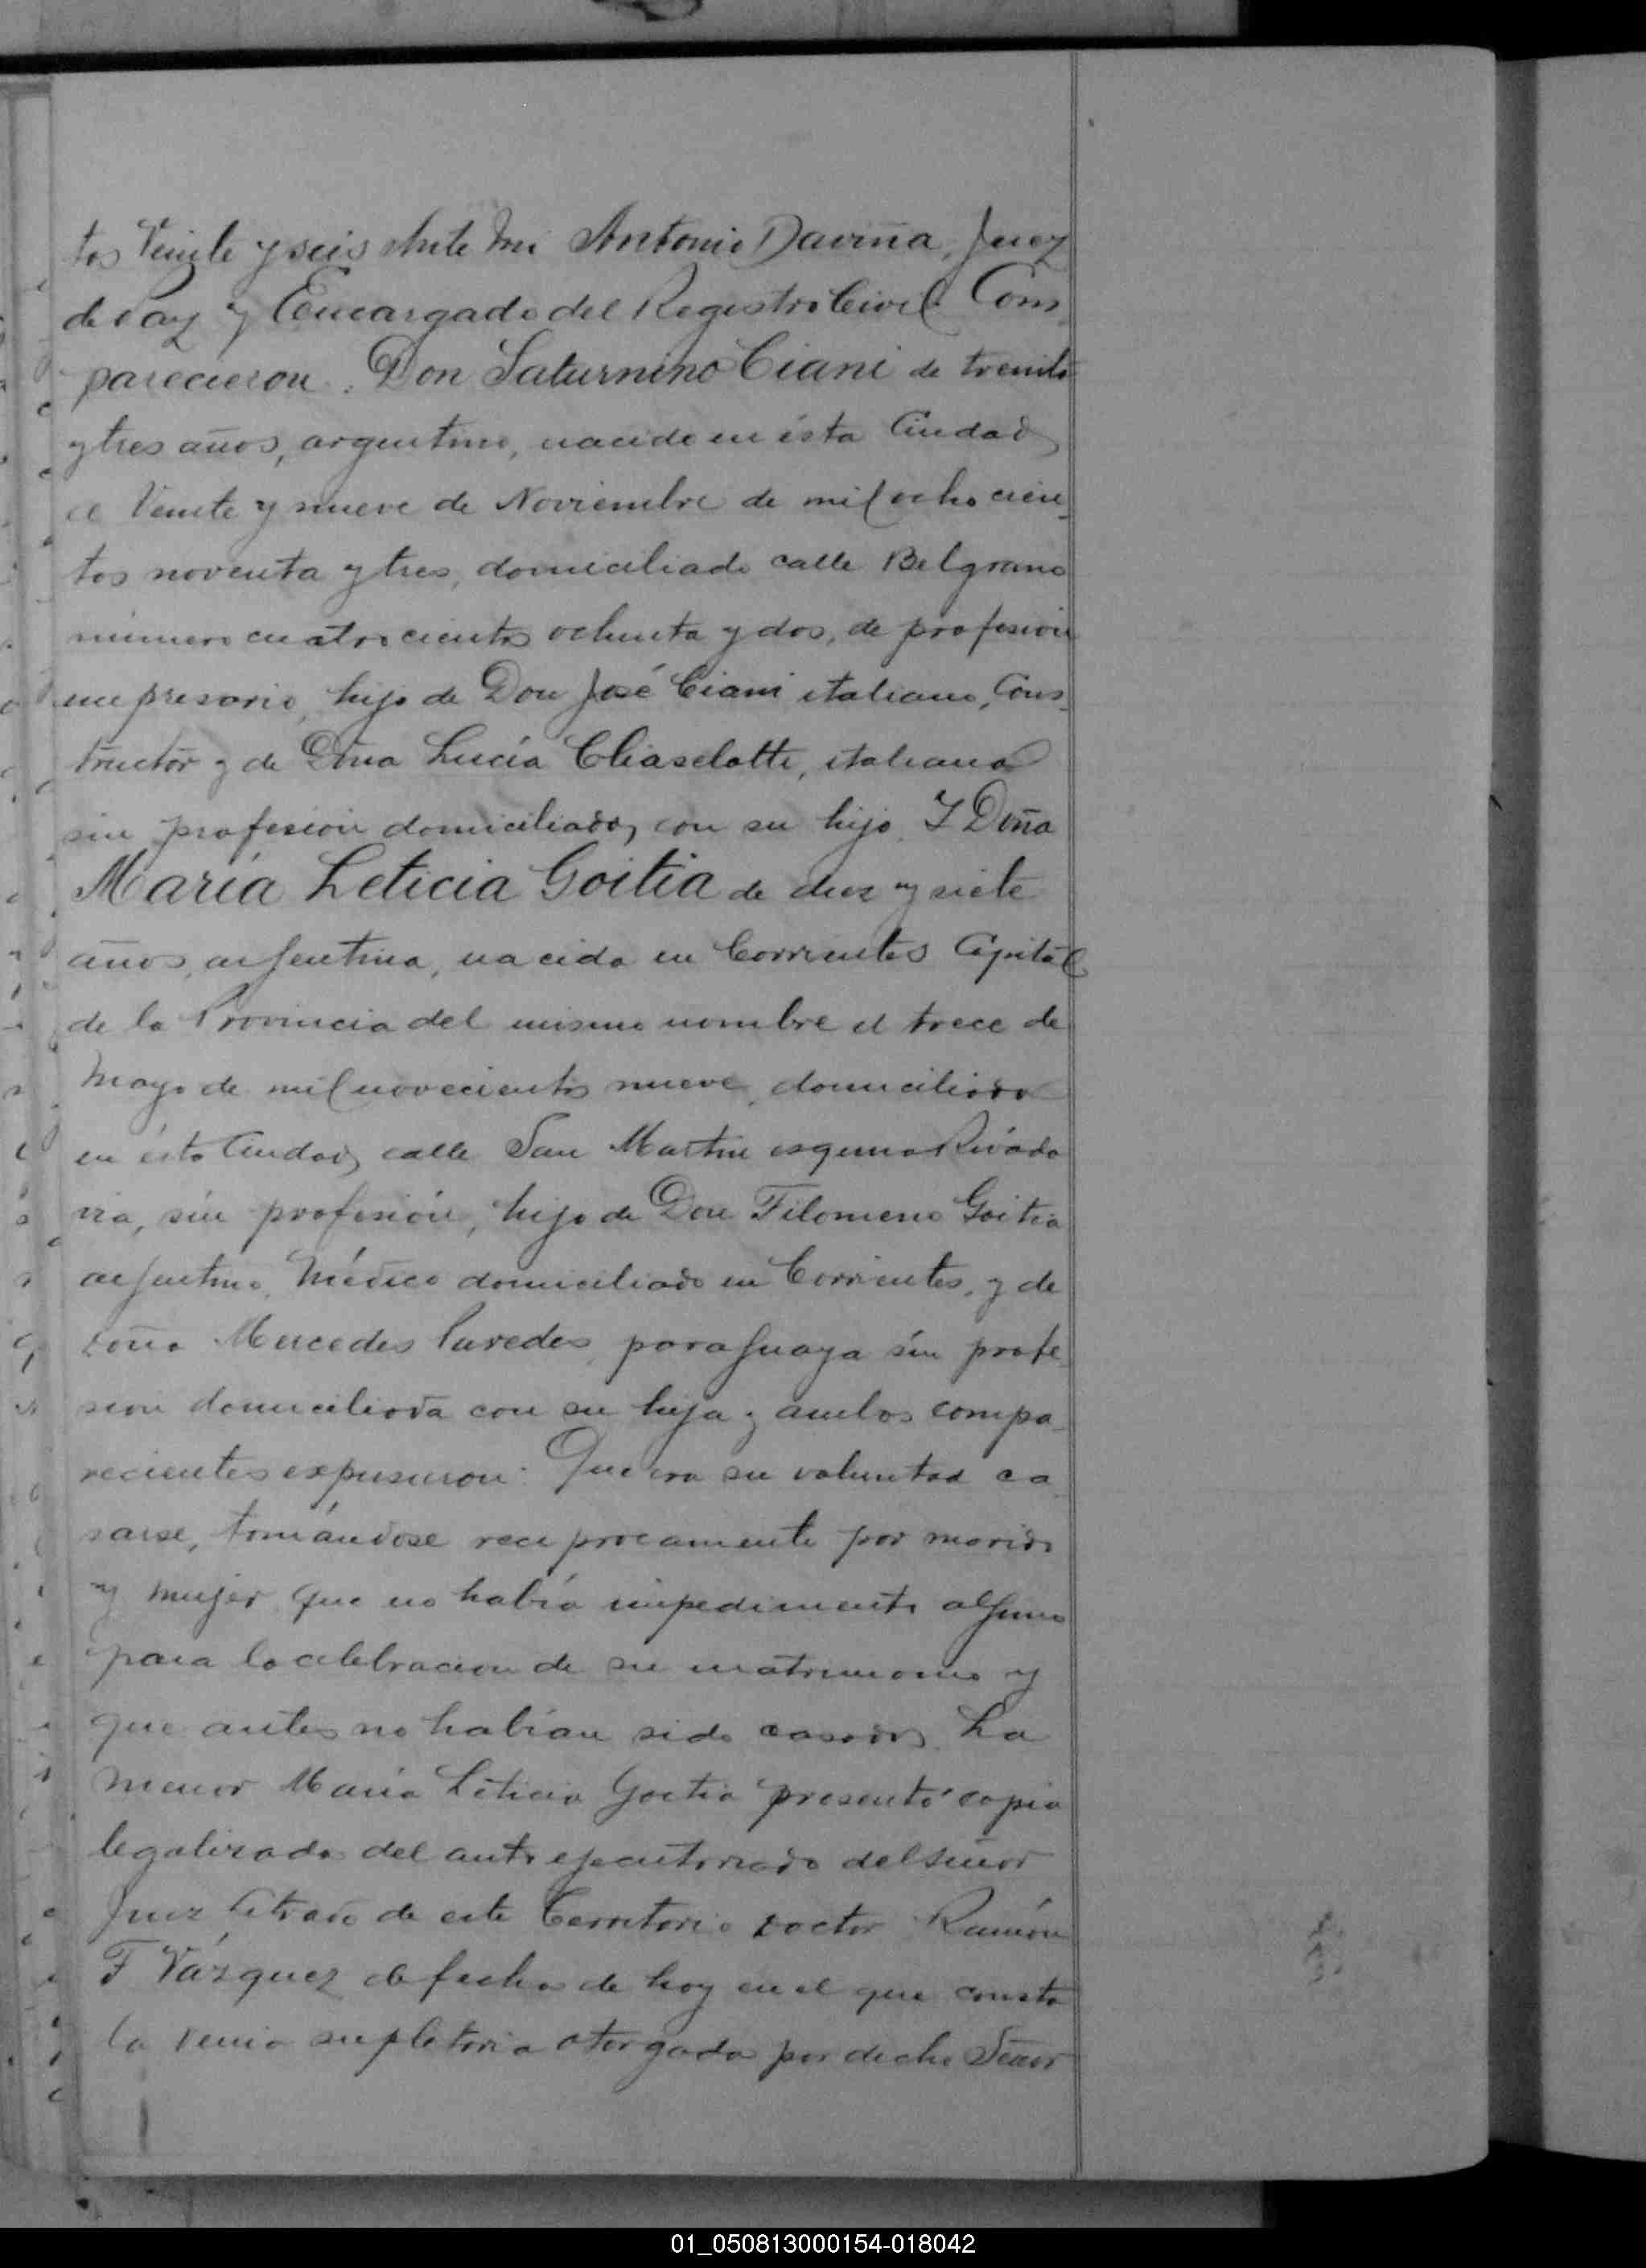 tos Veinte y seis Ante Mi Antonio Daviña, Juez
de Paz y Encargado del Registro Civil Com_
parecieron: Don Saturnino Ciani de treinta
y tres años, argentino, nacido en ésta Ciudad
el Veinte y nueve de Noviembre de mil ocho cien_
tos noventa y tres, domiciliado calle Belgrano
número cuatrocientos ochenta y dos, de profesión
empresario, hijo de Don José Ciani italiano, Cons_
tructor y de Doña Lucía Chiaselotti, italiana
sin profesión domiciliada, con su hijo. Y Doña
María Leticia Goitia de diez y siete
años, argentina, nacida en Corrientes Capital
de la Provincia del mismo nombre el trece de
Mayo de mil novecientos nueve, domiciliada
en ésta Ciudad, calle San Martín esquina Rivada
via, sin profesión, hija de Don Filomeno Goitia
argentino, Médico domiciliado en Corrientes, y de
Doña Mercedes Paredes, paraguaya sin profe_
sión domiciliada con su hija y ambos compa_
recientes expusieron: Que era su voluntad ca_
sarse, tomándose reciprocamente por marido
y mujer que no había impedimento alguno
para la celebración de su matrimonio y
que antes no habían sido casados. La
menor María Leticia Goitia presentó copia
legalizada del auto ejecutoriado del señor
Juez Letrado de este Territorio Doctor Ramón
F Vázquez de fecha de hoy en el que consta
la venia supletoria otorgada por dicho Señor
01_050813000154-018042